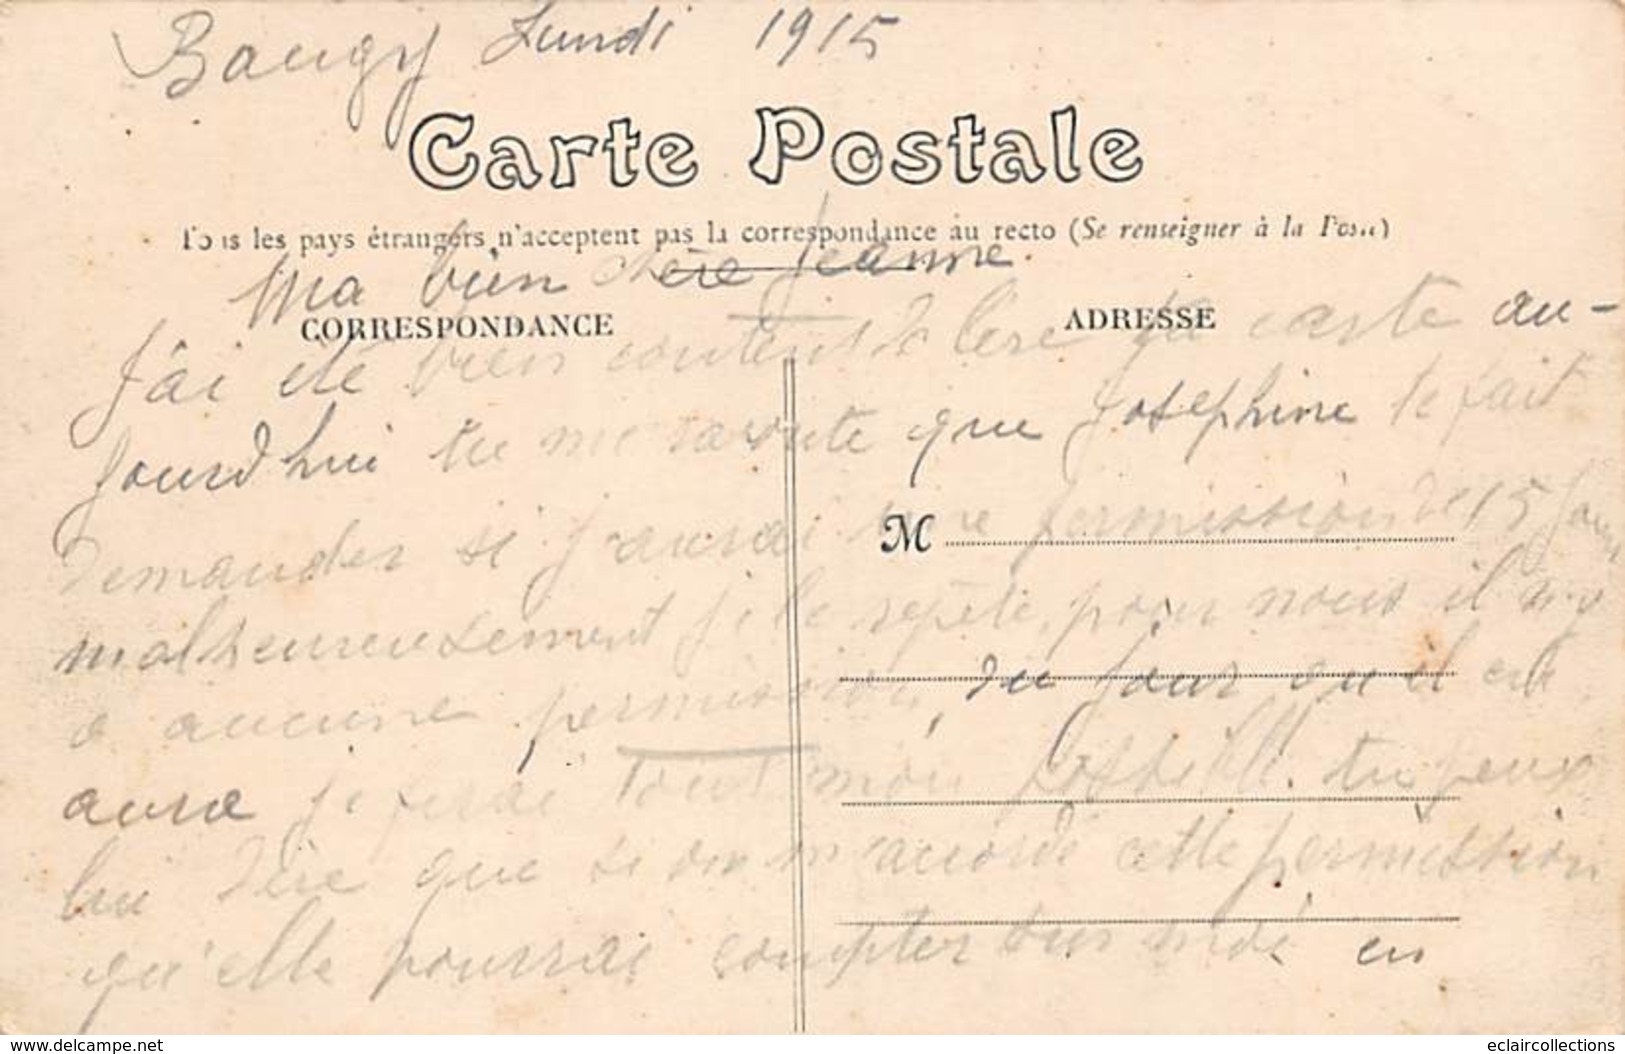 Baugy Lundi 1915
Carte Postale
Tous les pays étrangers n'acceptent pas la correspondance au recto (Se renseigner à la Poste)
Ma bien chère Jeanne.
CORRESPONDANCE
ADRESSE
J'ai été bien content de lire ta carte au-
jourd'hui tu me raconte que Josephine te fait
demander si j'aurai une permission de 15 jours
M
malheureusement je le repète, pour nous il n'y
a aucune permission, du jour qu'il en
aura je ferai tout mon possible. tu peux
lui dire que si on m'accorde cette permission
qu'elle pourrai compter sur moi en
www.delcampe.net
eclaircollections